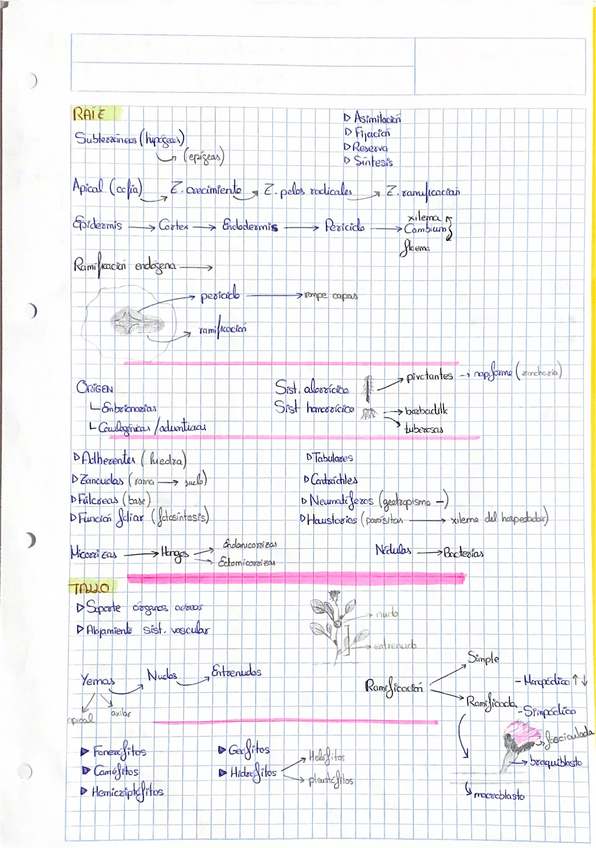 RAÍZ
Subterráneas (hipógeas)
(epígeas)
▷ Asimilación
▷ Fijación
▷ Reserva
▷ Síntesis
Apical (cofia) → Z. crecimiento → Z. pelos radicales → Z. ramificación
Epidermis → Cortex → Endodermis → Periciclo → xilema
Cambium
floema
Ramificación endógena →
periciclo → rompe capas
ramificación
ORIGEN
Embrionarias
Caulogénicas / adventicias
Sist. alorrícico
Sist homorrícico
pivotantes → napiforme (zanahoria)
tuberosas
▷ Adherentes (hiedra)
▷ Zancudas (rama → suelo)
▷ Fúlcreas (base)
▷ Función foliar (fotosíntesis)
▷ Tabulares
▷ Contráctiles
▷ Neumatíferos (geotropismo -)
▷ Haustorios (parásitas → xilema del hospedador)
Micorrizas → Hongos → Endomicorrizas
→ Ectomicorrizas
Nódulos → Bacterias
TALLO
▷ Soporte órganos aéreos
▷ Alojamiento sist. vascular
nudo
entrenudo
Yemas → Nudos → Entrenudos
apical
axilar
Ramificación → Simple
→ Ramificada
- Monopódico ↑↓
- Simpódico
fasciculada
braquiblasto
macroblasto
▷ Fanerófitos
▷ Caméfitos
▷ Hemicriptófitos
▷ Geófitos
▷ Hidrófitos → Helófitos
→ pleustófitos